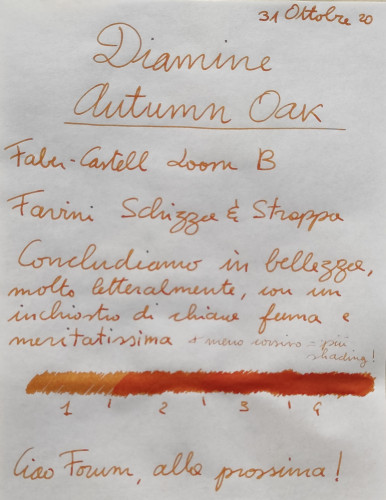 31 Ottobre 20
Diamine
Autumn Oak
Faber-Castell Loom B
Favini Schizza & Strappa
Concludiamo in bellezza,
molto letteralmente, con un
inchiostro di chiara fama e
meritatissima + meno corsivo = più
shading!
1 2 3 4
Ciao Forum, alla prossima!